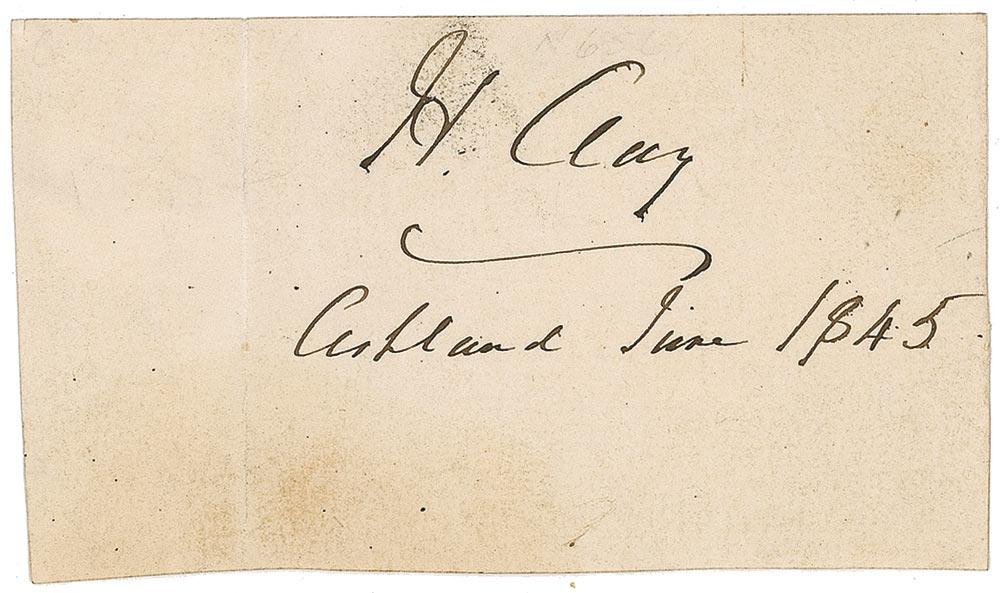 H. Clay
Ashland June 1845.